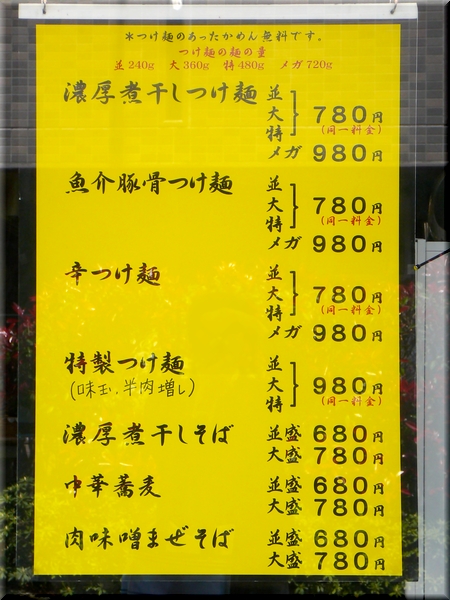 ＊つけ麺のあったかめん無料です。
つけ麺の麺の量
並240g 大360g 特480g メガ720g
濃厚煮干しつけ麺 並 大 特 780円
(同一料金)
メガ 980円
魚介豚骨つけ麺 並 大 特 780円
(同一料金)
メガ 980円
辛つけ麺 並 大 特 780円
(同一料金)
メガ 980円
特製つけ麺 並 大 特 980円
(味玉、半肉増し) (同一料金)
濃厚煮干しそば 並盛 680円
大盛 780円
中華蕎麦 並盛 680円
大盛 780円
肉味噌まぜそば 並盛 680円
大盛 780円